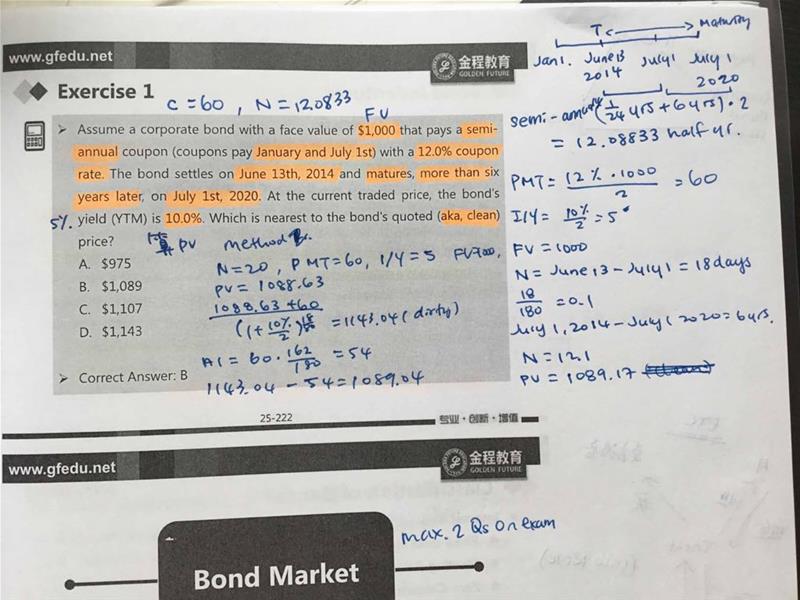 T <—> Maturity
www.gfedu.net
金程教育
GOLDEN FUTURE
Jan 1. June 13 July 1 July 1
2014 2020
Exercise 1
C = 60 , N = 12.0833
FV
semi-annual (1/24 yrs + 6 yrs) · 2
= 12.08833 half yr.
Assume a corporate bond with a face value of $1,000 that pays a semi-
annual coupon (coupons pay January and July 1st) with a 12.0% coupon
rate. The bond settles on June 13th, 2014 and matures, more than six
years later, on July 1st, 2020. At the current traded price, the bond's
5% yield (YTM) is 10.0%. Which is nearest to the bond's quoted (aka, clean)
price?
算 PV method
A. $975
B. $1,089
C. $1,107
D. $1,143
N = 20 , PMT = 60 , I/Y = 5
PV = 1088.63
1088.63 + 60
(1 + 10%/2)^18/180 = 1143.04 (dirty)
AI = 60 · 162/180 = 54
Correct Answer: B
1143.04 - 54 = 1089.04
PMT = 12% · 1000 / 2 = 60
I/Y = 10%/2 = 5
FV = 1000
N = June 13 - July 1 = 18 days
18/180 = 0.1
July 1, 2014 - July 1 2020 = 6 yrs.
N = 12.1
PV = 1089.17
25-222
专业·创新·增值
www.gfedu.net
金程教育
GOLDEN FUTURE
max. 2 Qs on exam
Bond Market